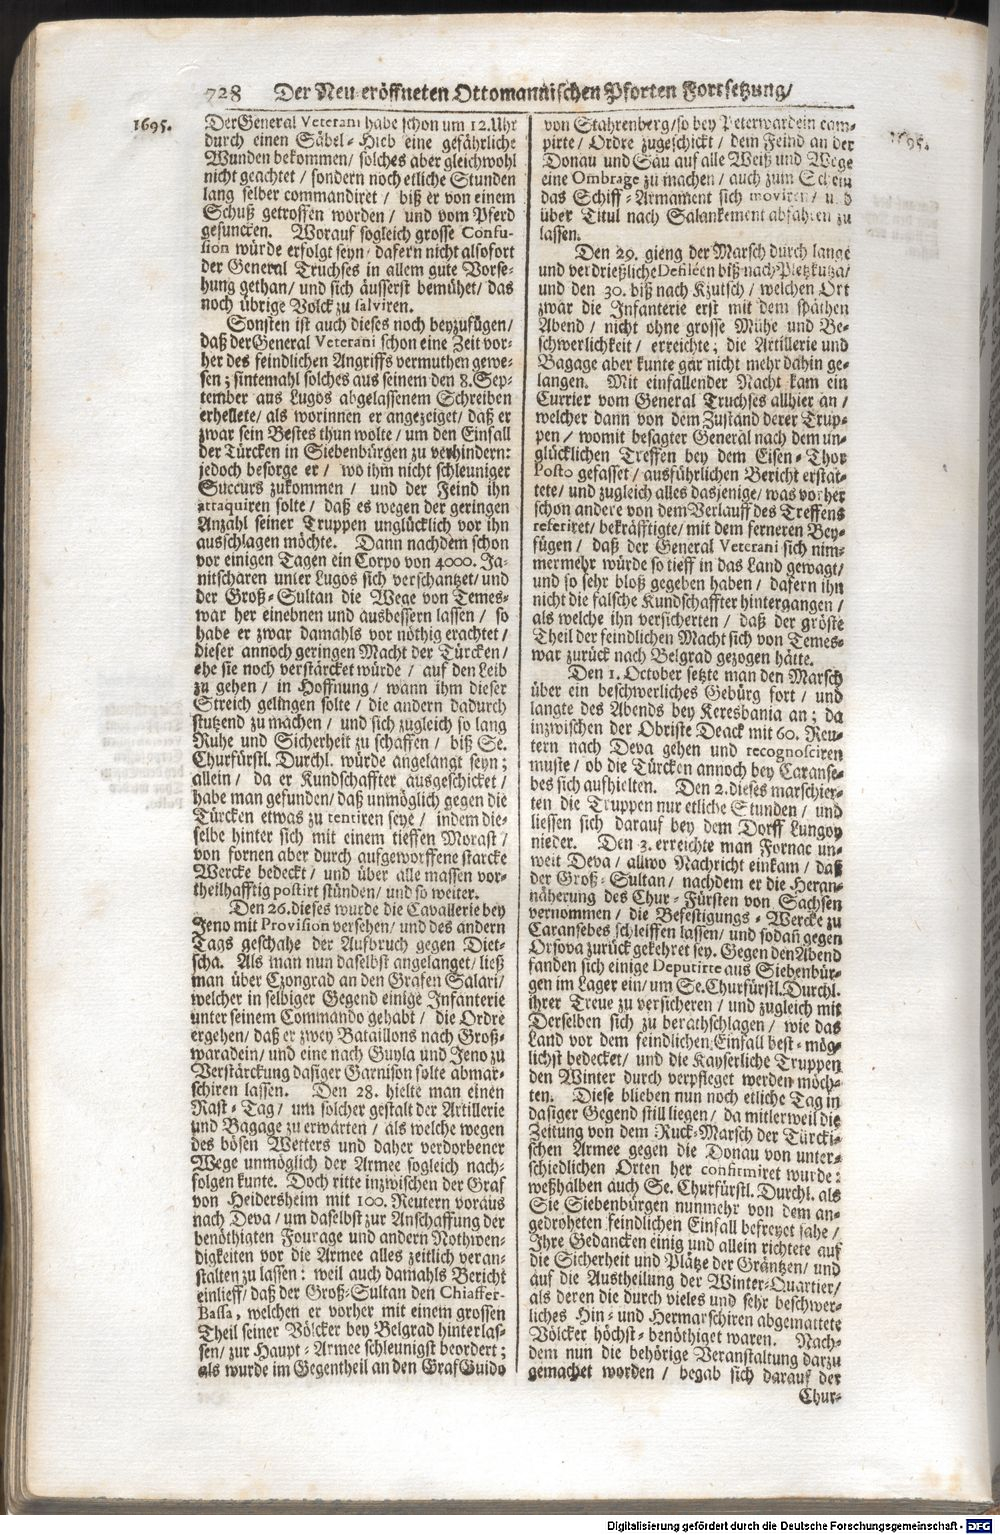 728 Der Neu-eröffneten Ottomannischen Pforten Fortsetzung/
1695.
Der General Veterani habe schon um 12. Uhr
durch einen Säbel-Hieb eine gefährliche
Wunden bekommen/ solches aber gleichwohl
nicht geachtet/ sondern noch etliche Stunden
lang selber commandiret/ biß er von einem
Schuß getroffen worden/ und vom Pferd
gesuncken. Worauf sogleich grosse Confu-
sion würde erfolgt seyn/ dafern nicht alsofort
der General Truchses in allem gute Vorse-
hung gethan/ und sich äusserst bemühet/ das
noch übrige Volck zu salviren.
Sonsten ist auch dieses noch beyzufügen/
daß der General Veterani schon eine Zeit vor-
her des feindlichen Angriffs vermuthen gewe-
sen; sintemahl solches aus seinem den 8. Sep-
tember aus Lugos abgelassenem Schreiben
erhellete/ als worinnen er angezeiget/ daß er
zwar sein Bestes thun wolte/ um den Einfall
der Türcken in Siebenbürgen zu verhindern:
jedoch besorge er/ wo ihm nicht schleuniger
Succurs zukommen/ und der Feind ihn
attaquiren solte/ daß es wegen der geringen
Anzahl seiner Truppen unglücklich vor ihn
ausschlagen möchte. Dann nachdem schon
vor einigen Tagen ein Corpo von 4000. Ja-
nitscharen unter Lugos sich verschantzet/ und
der Groß-Sultan die Wege von Temes-
war her einebnen und ausbessern lassen/ so
habe er zwar damahls vor nöthig erachtet/
dieser annoch geringen Macht der Türcken/
ehe sie noch verstärcket würde/ auf den Leib
zu gehen/ in Hoffnung/ wann ihm dieser
Streich gelingen solte/ die andern dadurch
stutzend zu machen/ und sich zugleich so lang
Ruhe und Sicherheit zu schaffen/ biß Se.
Churfürstl. Durchl. würde angelangt seyn;
allein/ da er Kundschaffter ausgeschicket/
habe man gefunden/ daß unmöglich gegen die
Türcken etwas zu tentiren seye/ indem die-
selbe hinter sich mit einem tieffen Morast/
von fornen aber durch aufgeworffene starcke
Wercke bedeckt/ und über alle massen vor-
theilhafftig postirt stünden/ und so weiter.
Den 26. dieses wurde die Cavallerie bey
Jeno mit Provision versehen/ und des andern
Tags geschahe der Aufbruch gegen Diet-
scha. Als man nun daselbst angelanget/ ließ
man über Czongrad an den Grafen Salari/
welcher in selbiger Gegend einige Infanterie
unter seinem Commando gehabt/ die Ordre
ergehen/ daß er zwey Bataillons nach Groß-
waradein/ und eine nach Guyla und Jeno zu
Verstärckung dasiger Garnison solte abmar-
schiren lassen. Den 28. hielte man einen
Rast-Tag/ um solcher gestalt der Artillerie
und Bagage zu erwarten/ als welche wegen
des bösen Wetters und daher verdorbener
Wege unmöglich der Armee sogleich nach-
folgen kunte. Doch ritte inzwischen der Graf
von Heidersheim mit 100. Reutern voraus
nach Deva/ um daselbst zur Anschaffung der
benöthigten Fourage und andern Nothwen-
digkeiten vor die Armee alles zeitlich veran-
stalten zu lassen: weil auch damahls Bericht
einlieff/ daß der Groß-Sultan den Chiaffer-
Bassa, welchen er vorher mit einem grossen
Theil seiner Völcker bey Belgrad hinterlas-
sen/ zur Haupt-Armee schleunigst beordert;
als wurde im Gegentheil an den Graf Guido
1695.
von Stahrenberg/ so bey Peterwardein cam-
pirte/ Ordre zugeschickt/ dem Feind an der
Donau und Sau auf alle Weiß und Wege
eine Ombrage zu machen/ auch zum Schein
das Schiff-Armament sich moviren/ und
über Titul nach Salankement abfahren zu
lassen.
Den 29. gieng der Marsch durch lange
und verdrießliche Defiléen biß nach Pletzkutza/
und den 30. biß nach Kzutsch/ welchen Ort
zwar die Infanterie erst mit dem späthen
Abend/ nicht ohne grosse Mühe und Be-
schwerlichkeit/ erreichte; die Artillerie und
Bagage aber kunte gar nicht mehr dahin ge-
langen. Mit einfallender Nacht kam ein
Currier vom General Truchses allhier an/
welcher dann von dem Zustand derer Trup-
pen/ womit besagter General nach dem un-
glücklichen Treffen bey dem Eisen-Thor
Posto gefasset/ ausführlichen Bericht erstat-
tete/ und zugleich alles dasjenige/ was vorher
schon andere von dem Verlauff des Treffens
referiret/ bekräfftigte/ mit dem ferneren Bey-
fügen/ daß der General Veterani sich nim-
mermehr würde so tieff in das Land gewagt/
und so sehr bloß gegeben haben/ dafern ihn
nicht die falsche Kundschaffter hintergangen/
als welche ihn versicherten/ daß der gröste
Theil der feindlichen Macht sich von Temes-
war zurück nach Belgrad gezogen hätte.
Den 1. October setzte man den Marsch
über ein beschwerliches Gebürg fort/ und
langte des Abends bey Keresbania an; da
inzwischen der Obriste Deack mit 60. Reu-
tern nach Deva gehen und recognosciren
muste/ ob die Türcken annoch bey Caranse-
bes sich aufhielten. Den 2. dieses marschier-
ten die Truppen nur etliche Stunden/ und
liessen sich darauf bey dem Dorff Lungoy
nieder. Den 3. erreichte man Fornac un-
weit Deva/ allwo Nachricht einkam/ daß
der Groß-Sultan/ nachdem er die Heran-
näherung des Chur-Fürsten von Sachsen
vernommen/ die Befestigungs-Wercke zu
Caransebes schleiffen lassen/ und sodañ gegen
Orsova zurück gekehret sey. Gegen den Abend
fanden sich einige Deputirte aus Siebenbür-
gen im Lager ein/ um Se. Churfürstl. Durchl.
ihrer Treue zu versicheren/ und zugleich mit
Derselben sich zu berathschlagen/ wie das
Land vor dem feindlichen Einfall best-mög-
lichst bedecket/ und die Kayserliche Truppen
den Winter durch verpfleget werden möch-
ten. Diese blieben nun noch etliche Tag in
dasiger Gegend still liegen/ da mitlerweil die
Zeitung von dem Ruck-Marsch der Türcki-
schen Armee gegen die Donau von unter-
schiedlichen Orten her confirmiret wurde:
weßhalben auch Se. Churfürstl. Durchl. als
Sie Siebenbürgen nunmehr von dem an-
gedroheten feindlichen Einfall befreyet sahe/
Ihre Gedancken einig und allein richtete auf
die Sicherheit und Plätze der Gräntzen/ und
auf die Austheilung der Winter-Quartier/
als deren die durch vieles und sehr beschwer-
liches Hin- und Hermarschiren abgemattete
Völcker höchst-benöthiget waren. Nach-
dem nun die behörige Veranstaltung darzu
gemachet worden/ begab sich darauf der
Chur-
Digitalisierung gefördert durch die Deutsche Forschungsgemeinschaft - DFG